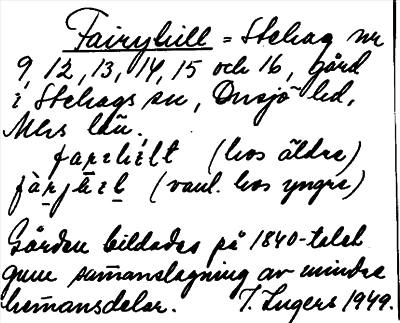 Fairyhill = Stehag nr
9, 12, 13, 14, 15 och 16, gård
i Stehags sn, Onsjö hd,
Mhs län.
(hos äldre)
(vanl. hos yngre)
Gården bildades på 1840-talet
gnm sam̄anslagning av mindre
hem̄ansdelar. I. Ingers 1949.